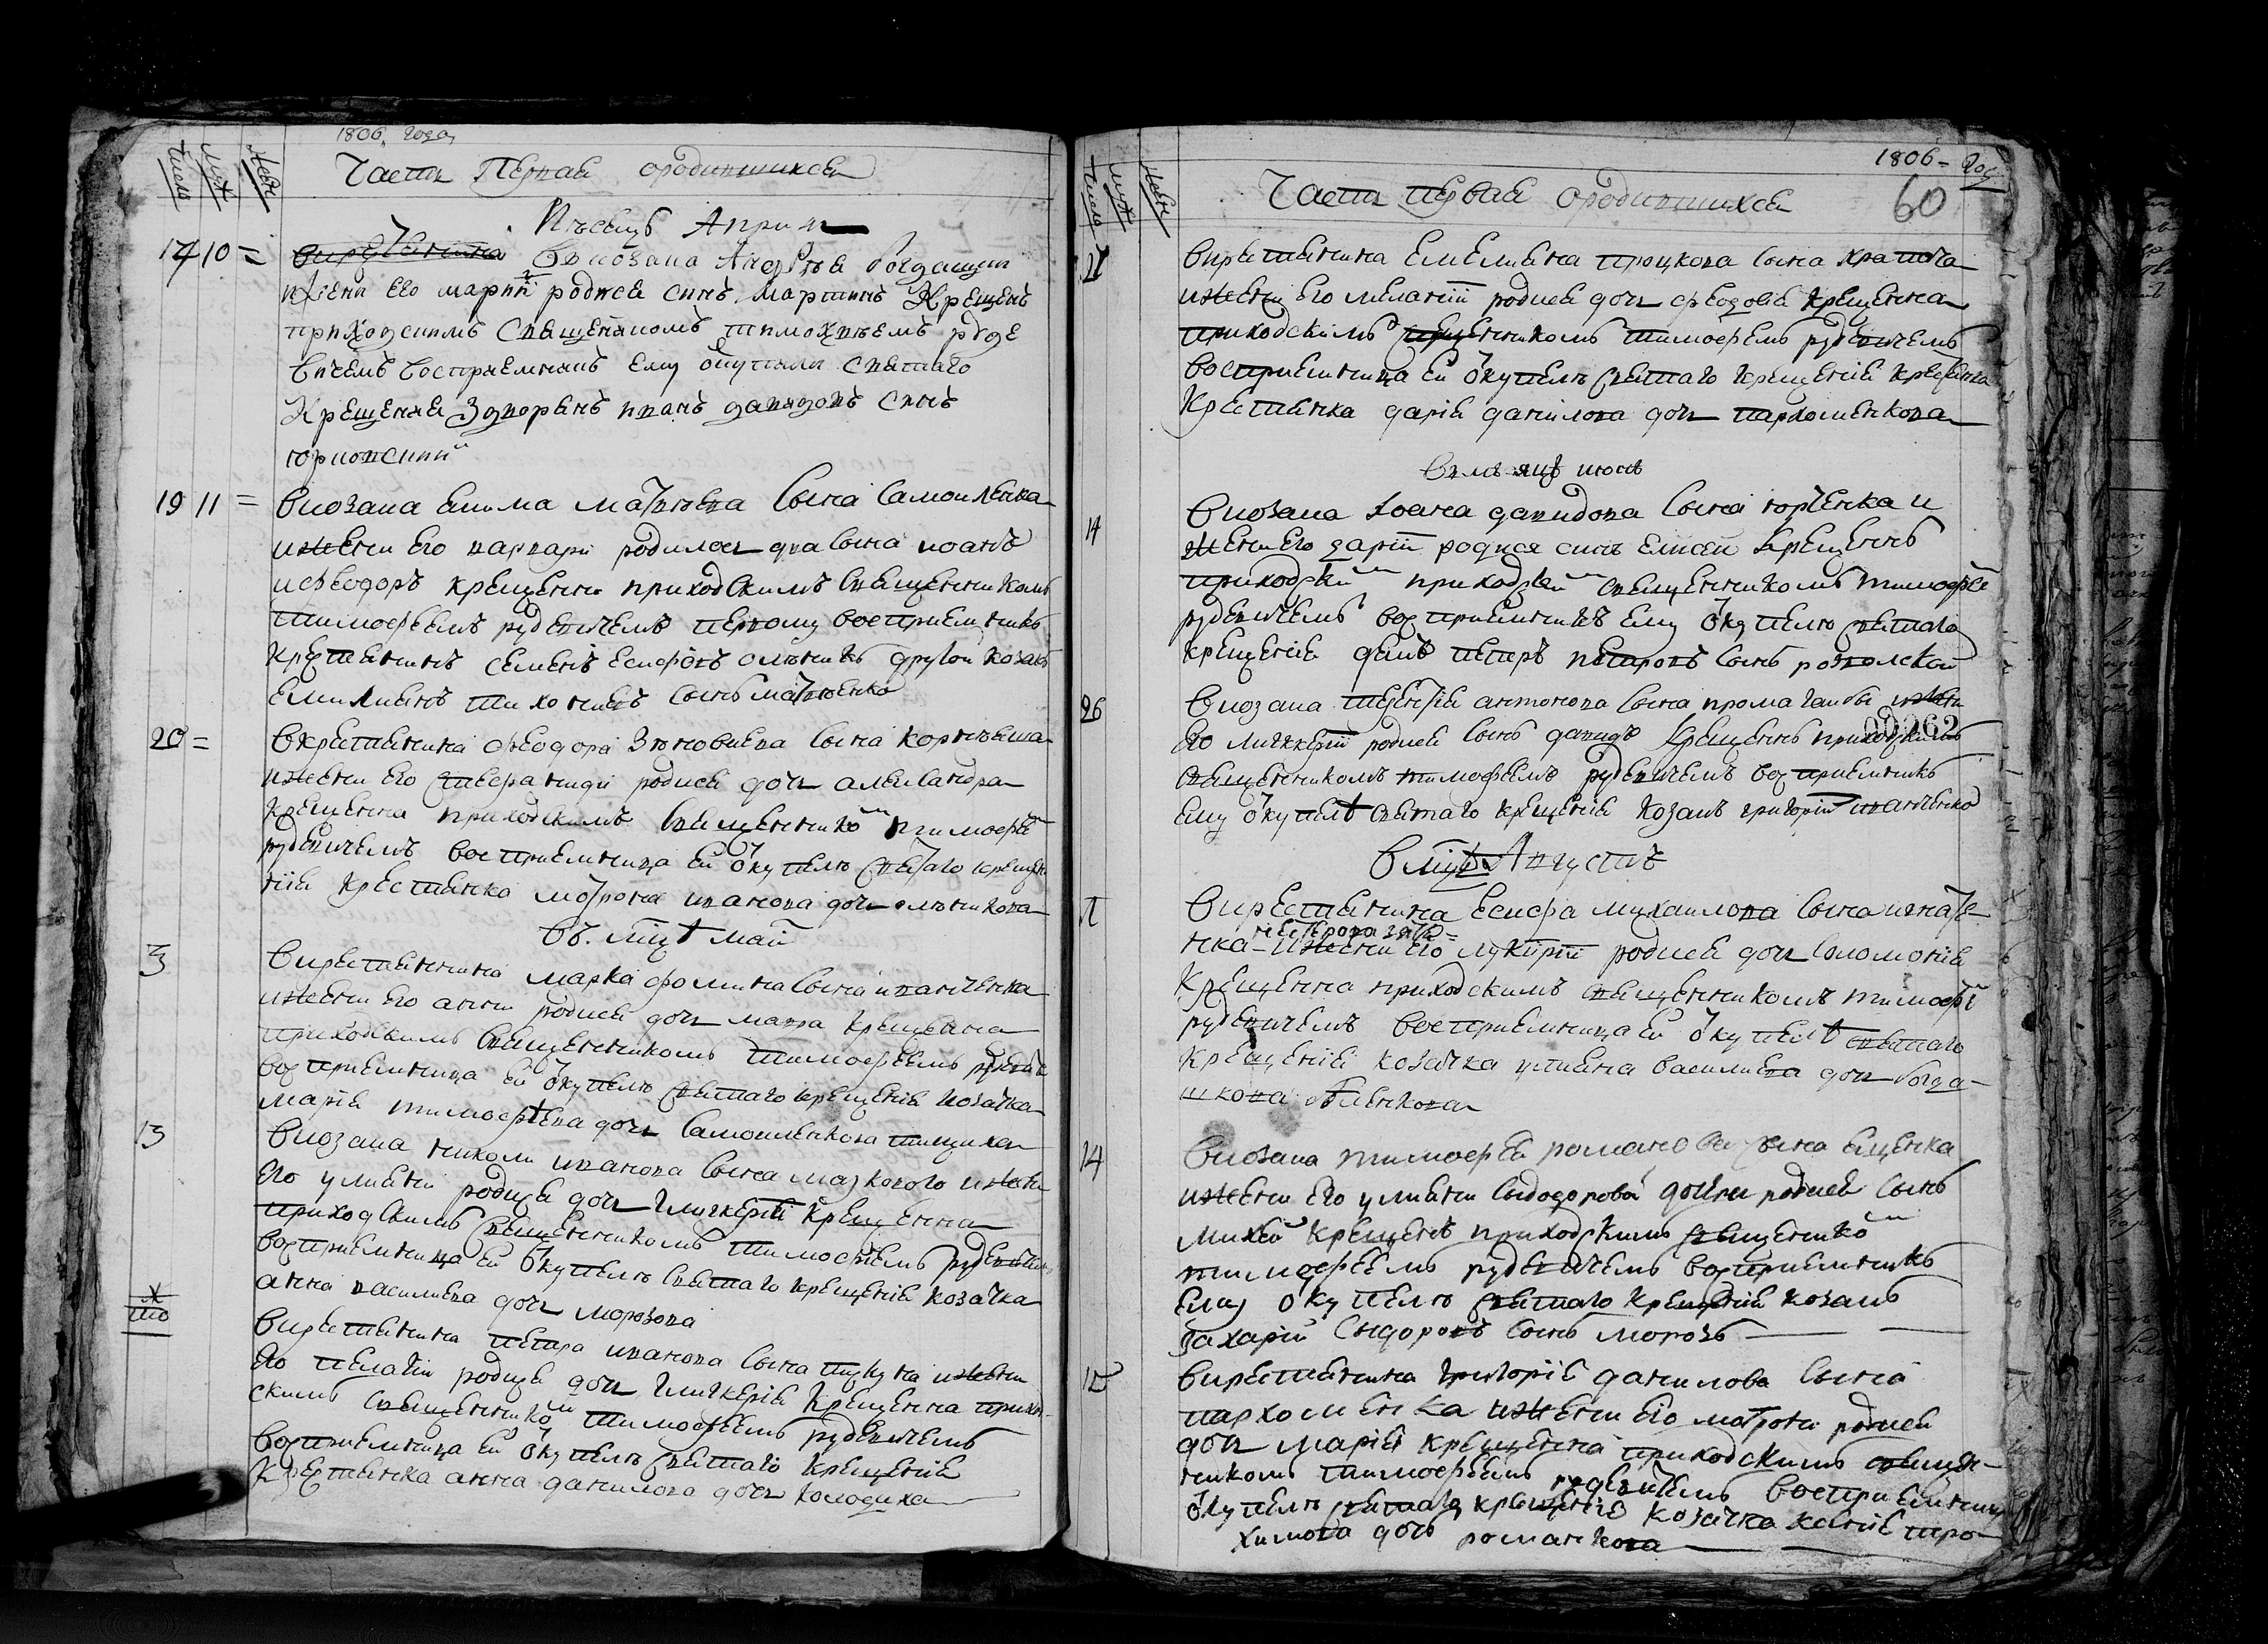 1806, года,
Число Муж Женс
Часть Первая ородившихся
Мѣсецъ Априлъ
17 10 =
Вкозака Андрѣя богдашин
ижени его марий родися синъ мартинъ Крещенъ
приходскимъ священикомъ тимохѣемъ рубе
вичемъ восприемникъ ему откупели святаго
Крещения Зтворенъ иванъ давидовъ синъ
юрковский
19 11 =
Вкозака Якима матвѣева сына самойленка
ижени его варвари родилось два сына иоанъ
ифеодоръ крещенни приходскимъ священникомъ
тимофеемъ рубевичемъ первому восприемникъ
крестянинъ семенъ есифовъ олѣникъ другой козакъ
емилиянъ тихоновъ сынъ матвѣенко
20 =
Вкрестянина феодора Зѣновиева сына корнѣенка
ижени его родися дочь александра
крещенна приходскимъ священником тимофеем
рубевичемъ восприемница ей от купелю святаго креще
нія крестянка мотрона иванова дочь олѣникова
въ. мцѣ май
3
Вкрестянина марка фомина сына иванченка
ижени его анни родися дочь мавра крещенна
приходскимъ священникомъ тимофеемъ рубевич
восприемница ей от купелю святаго крещенія козачка
марія тимофѣева дочь самойленкова
13
Вкозака николи иванова сына мазкового ижени
его улияни родися дочь гликерія крещенна
приходскимъ священникомъ тимофѣемъ рубевичемъ
восприемница ей от купелю святаго крещенія козачка
анна василиева дочь морозова
Вкрестянина петра иванова сына ижени
его пелагіи родися дочь гликерія крещенна прихо-
скимъ священником тимофеемъ рубевичемъ
восприемница ей от купелю святаго крещенія
Крестянка анна данилова дочь колодиха
1806 - Году
60
Число Муж Женс
Части первая ородившихся
21
Вкрестянина Емелияна процкова сына
ижени его меланіи родися дочь феодосія крещенна
приходскимъ священникомъ тимофѣемъ рубевичемъ
восприемница ей от купелю святаго крещенія
крестянка дарія данилова дочь пархоменкова
Вмѣсяцѣ июнѣ
14
Вкозака Иоана давидова сына юрченка и
жени его даріи родися синъ елисей крещеннъ
приходским приходским священникомъ тимофѣе
рубевичемъ восприемникъ ему от купелю святаго
крещенія дякъ петръ петровъ сынъ
26
Вкозака терентія антонова сына ижени
его гликеріи родися сынъ давидъ крещеннъ приходскимъ
священникомъ тимофѣемъ рубевичемъ восприемникъ
ему от купелѣ святаго крещенія козакъ григорій иванченко
00262
Вмцѣ Августѣ
Вкрестянина Есифа михаилова сына игнатe-
нка - ижени его лукиріи родися дочь соломонія
крещенна приходскимъ священникомъ тимофѣ
рубевичемъ восприемница ей от купелѣ святаго
крещенія козачка улияна василиева дочь богда-
шкова
14
Вкозака тимофея романова сына ещенка
ижени его улияни сыдоровой дочки родися сынъ
михей крещенъ приходскимъ священиком
тимофеемъ рубевичемъ восприемникъ
ему от купелю святаго крещенія козакъ
захарій сыдоровъ сынъ морозъ
15
Вкрестянина григорія данилова сына
пархоменка ижени его мотрони родися
дочь марія крещенна приходскимъ священ-
никомъ тимофѣемъ рубевичемъ восприемница
от купелю святаго крещенія козачка ксенія тро-
химова дочь романкова